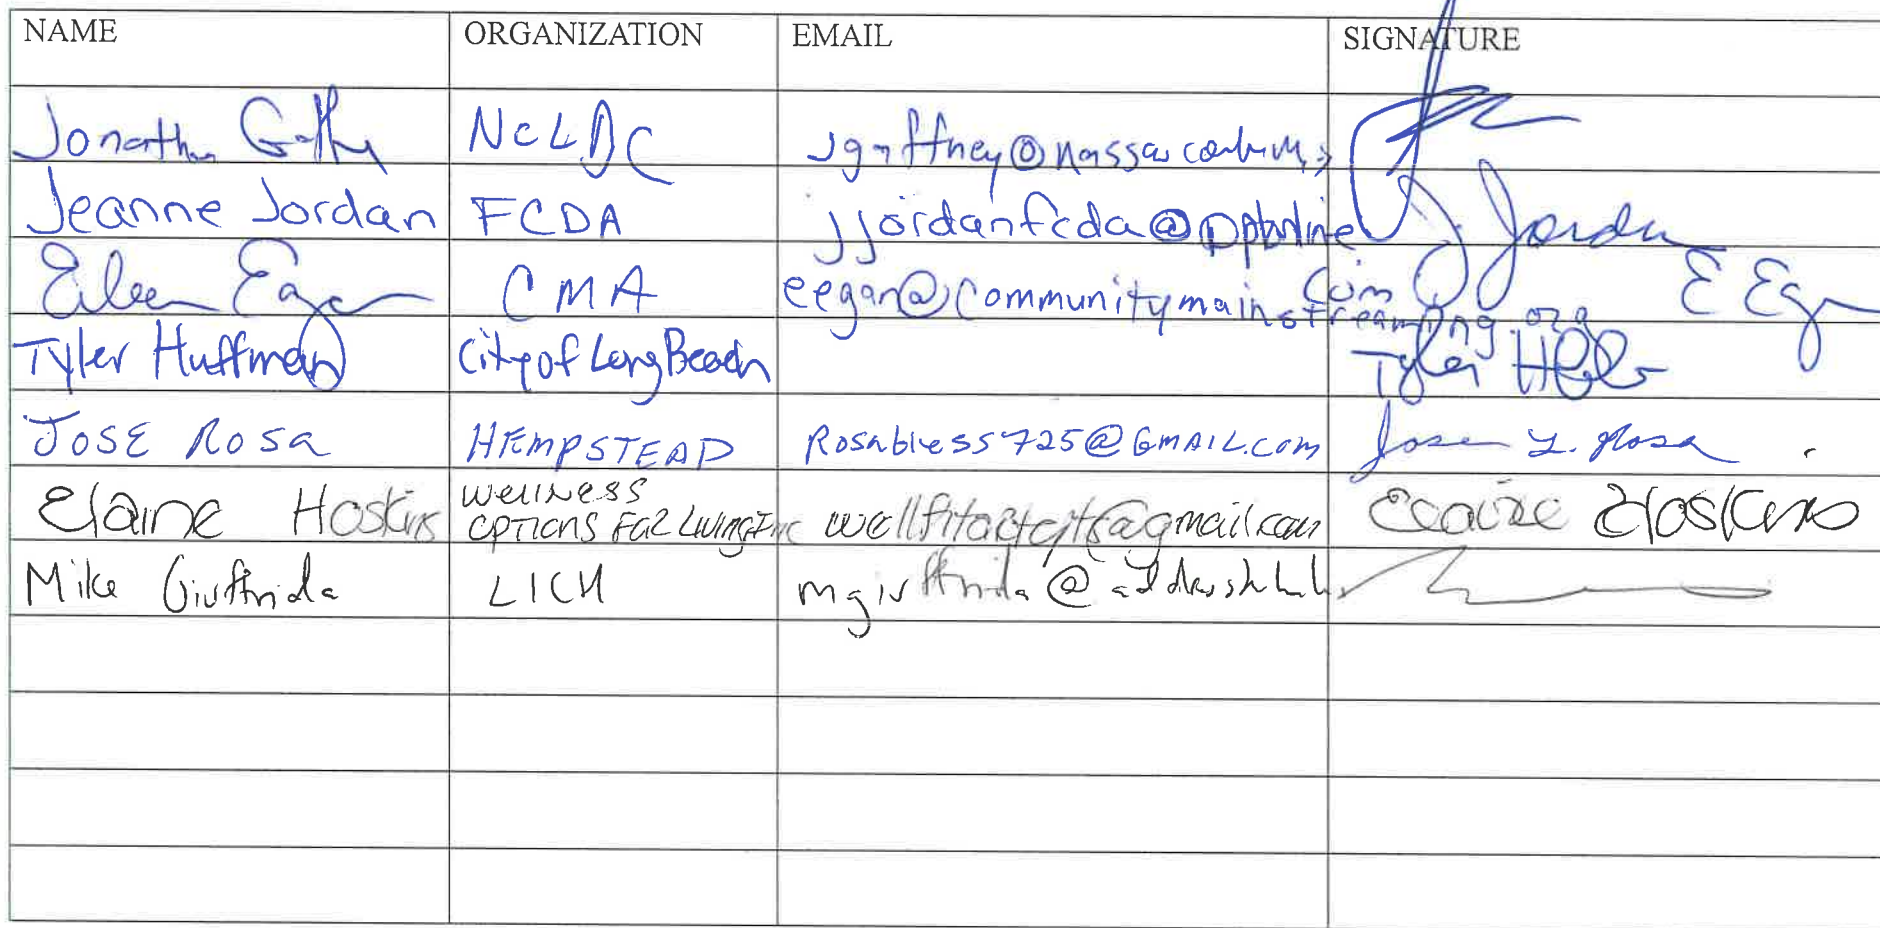 NAME ORGANIZATION EMAIL SIGNATURE
Jonathan NCLDC
Jeanne Jordan FCDA jjordanfcda@optonline.com J Jordan
Eileen Egan CMA eegan@communitymainstreaming.org E Egan
Tyler Huffman City of Long Beach Tyler
JOSE ROSA HEMPSTEAD Rosabless725@GMAIL.com Jose L. Rosa
Elaine Hoskins WELLNESS OPTIONS FOR LIVING Inc Elaine Hoskins
Mike Giuffrida LICH